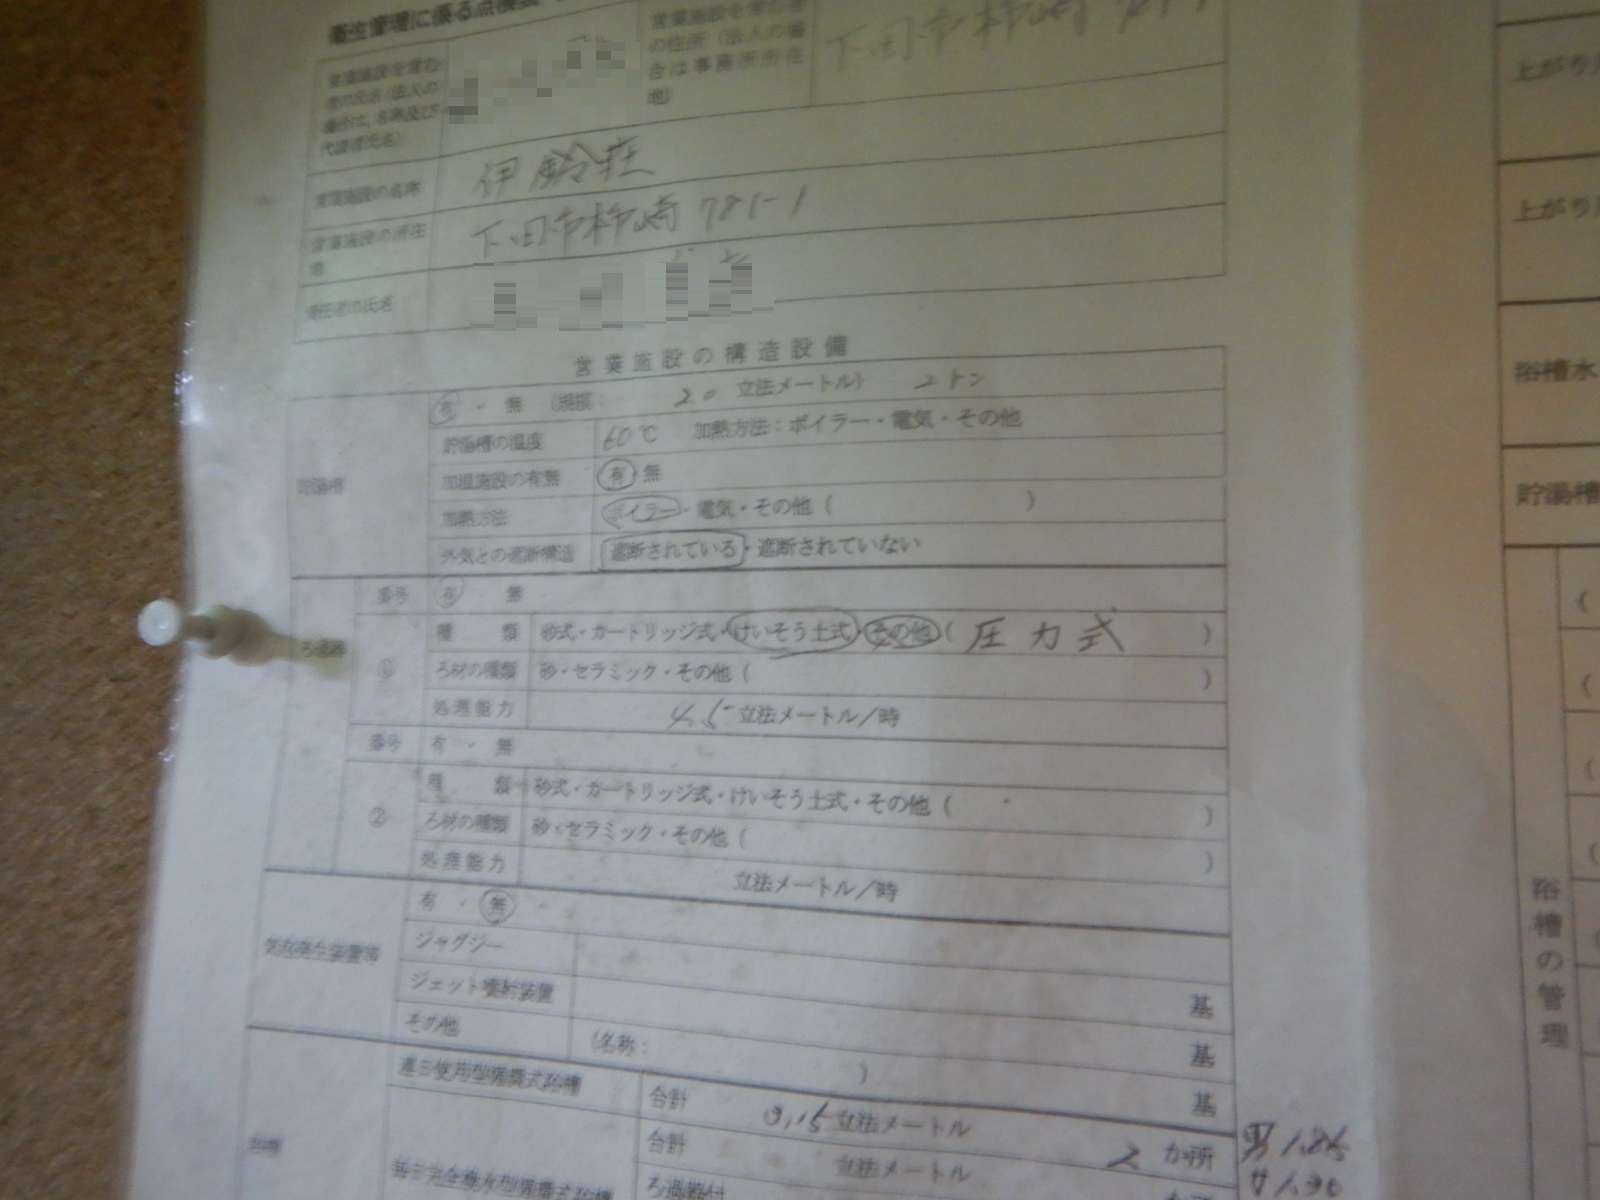 衛生管理に係る点検
営業施設を営む
者の氏名(法人の
場合は、名称及び
代表者氏名)
営業施設を営む者
の住所(法人の場
合は事業所所在
地)
下田市柿崎
営業施設の名称 伊鈴荘
営業施設の所在
地
下田市柿崎 781-1
営業施設の構造設備
貯湯槽
有・無 (規模: 2.0 立法メートル) 2トン
貯湯槽の温度 60℃ 加熱方法:ボイラー・電気・その他
加温施設の有無 有・無
加熱方法 ボイラー・電気・その他( )
外気との遮断構造 遮断されている・遮断されていない
ろ過器
番号 有・無
①
種類 砂式・カートリッジ式・けいそう土式・その他( 圧力式 )
ろ材の種類 砂・セラミック・その他( )
処理能力 4.5 立法メートル/時
番号 有・無
②
種類 砂式・カートリッジ式・けいそう土式・その他( )
ろ材の種類 砂・セラミック・その他( )
処理能力 立法メートル/時
気泡発生装置等
有・無
ジャグジー 基
ジェット噴射装置 基
その他 (名称: ) 基
浴槽
連日使用型循環式浴槽 合計 立法メートル 2 か所
毎日完全換水型循環式浴槽 合計 立法メートル
ろ過器付
男
上がり
上がり
浴槽水
貯湯槽
浴槽の管理